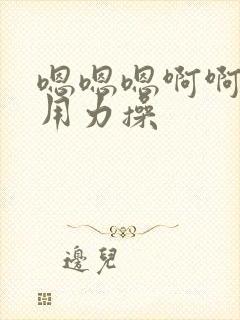 嗯嗯嗯啊啊
用力操
邊兒